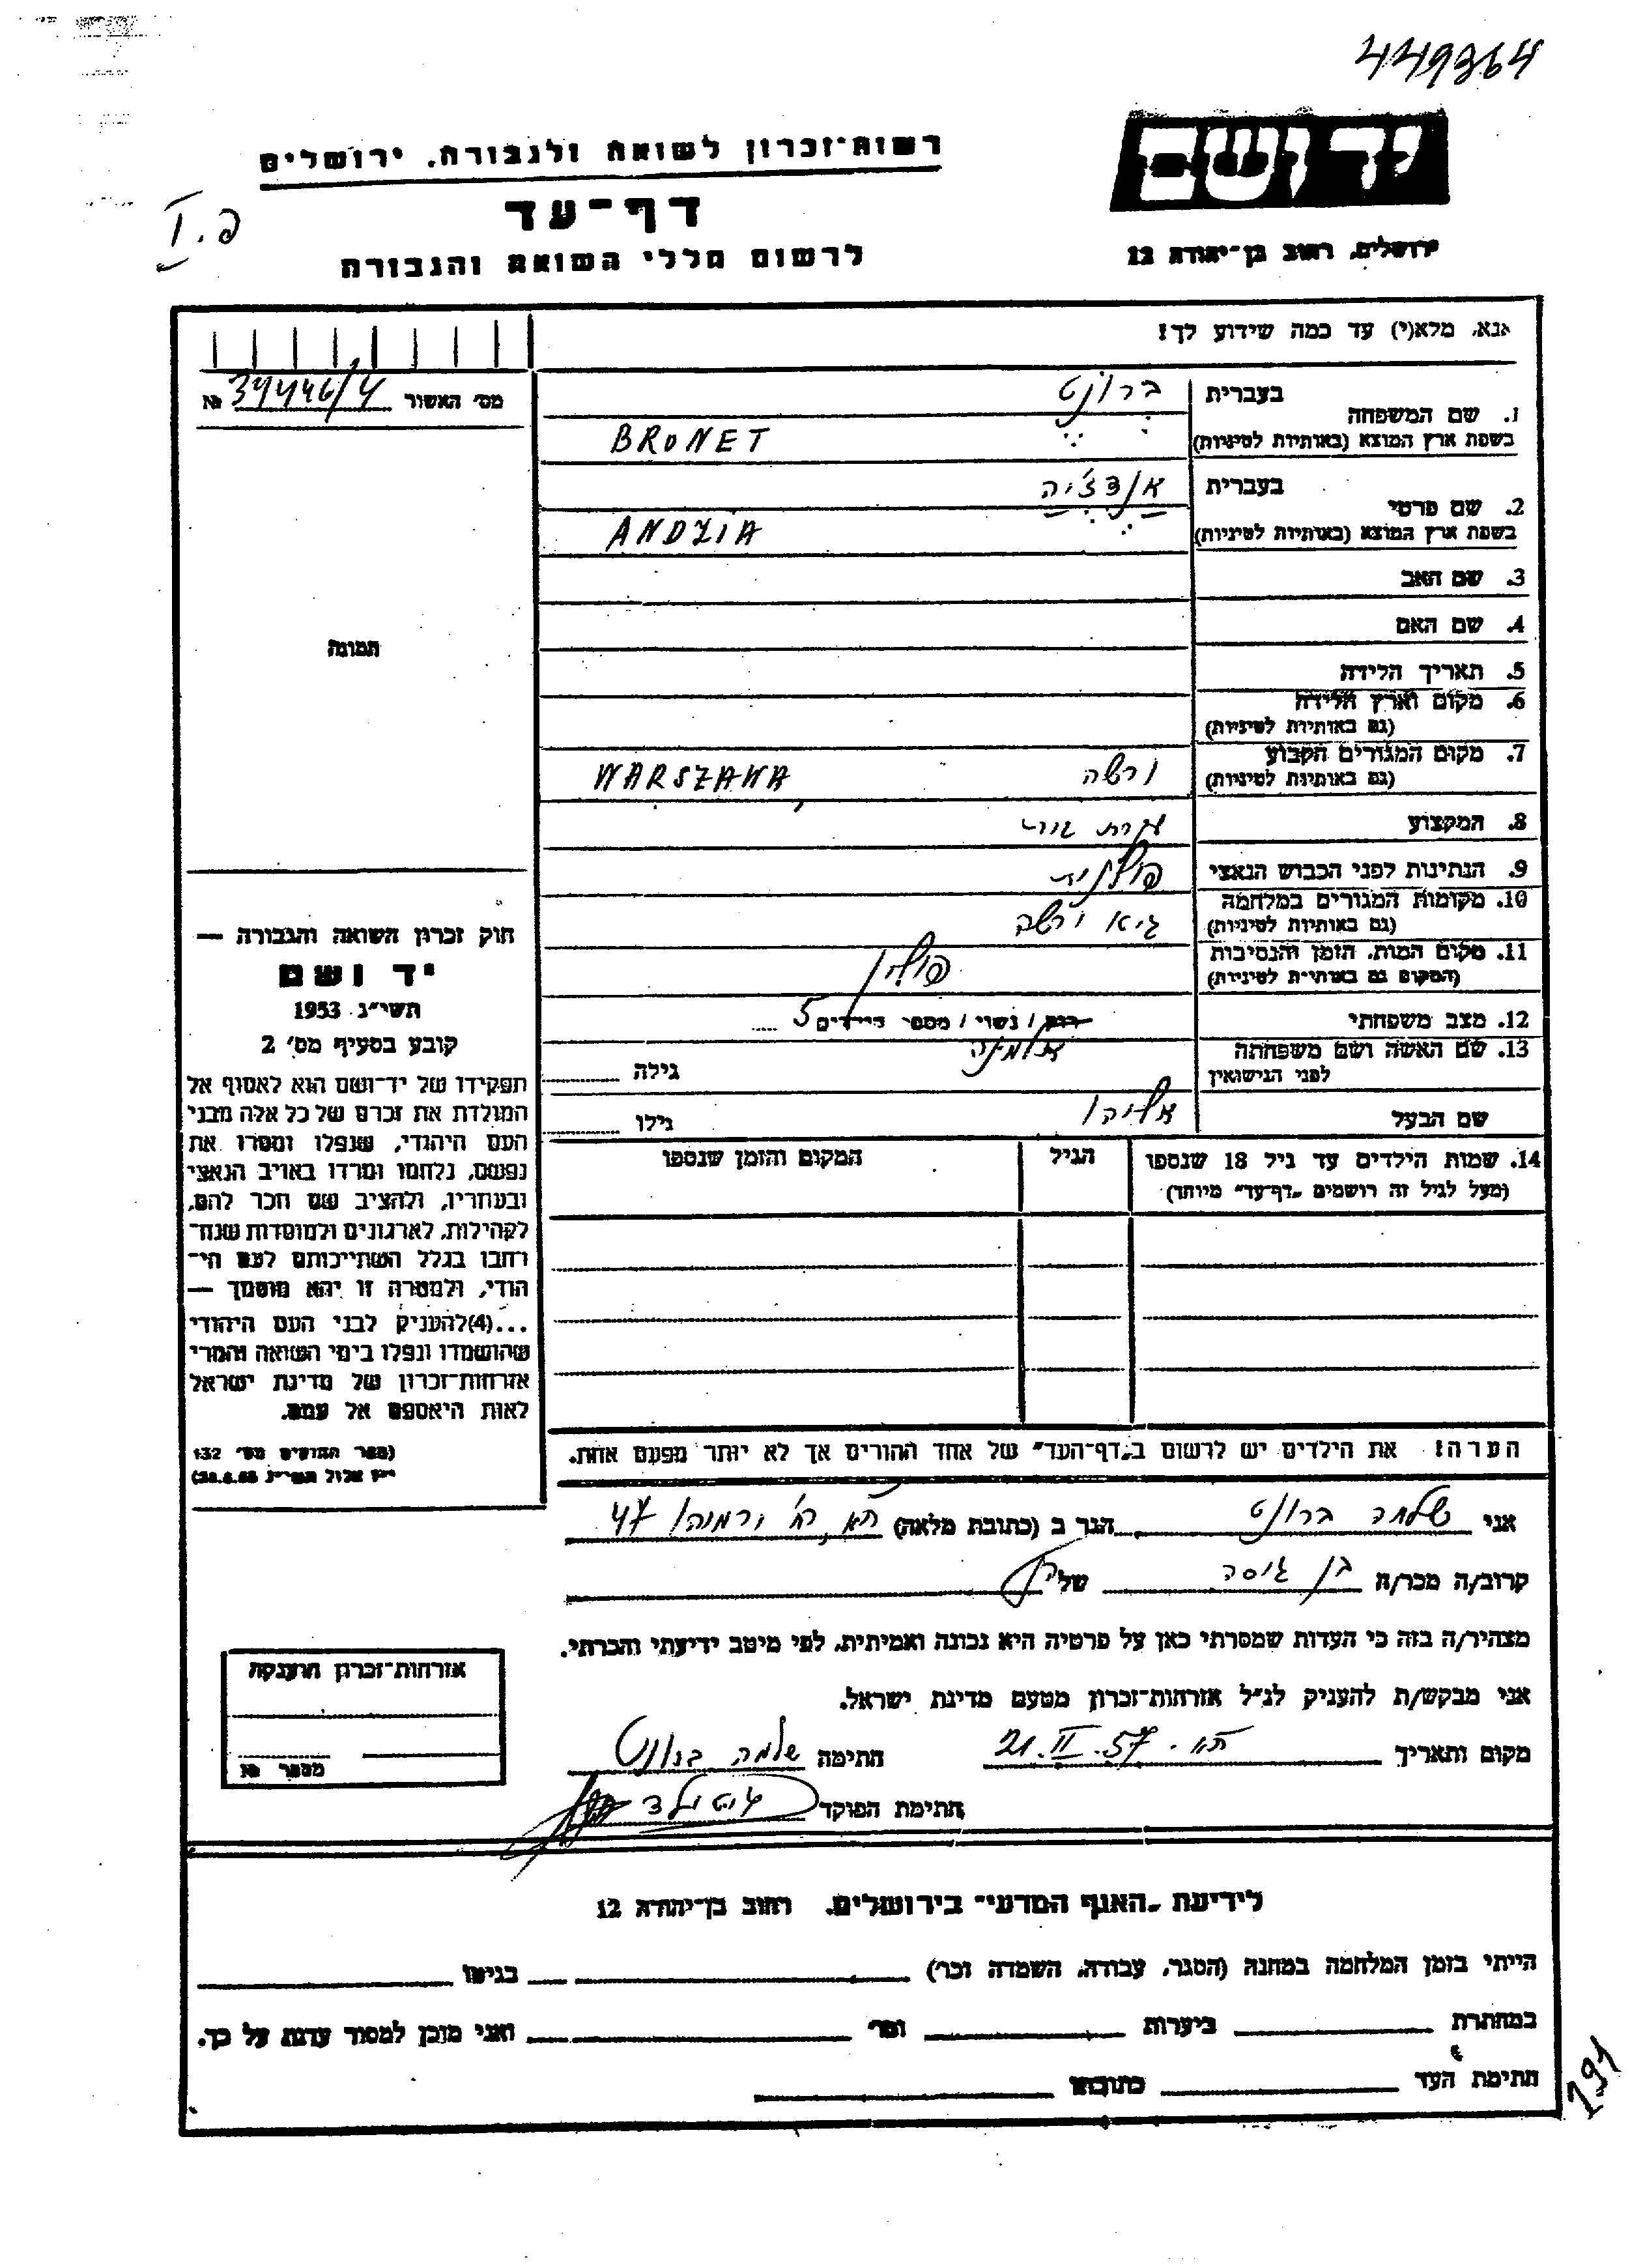 449364
יד ושם
ירושלים, רחוב בן־יהודה 12
רשות־זכרון לשואה ולגבורה, ירושלים
דף־עד
לרשום חללי השואה והגבורה
פ.I
אנא, מלא(י) עד כמה שידוע לך!
מס׳ האשור № 37446/4
1. שם המשפחה
בעברית ברונט
בשפת ארץ המוצא (באותיות לטיניות) BRONET
2. שם פרטי
בעברית אנדצ׳יה
בשפת ארץ המוצא (באותיות לטיניות) ANDZIA
3. שם האב
4. שם האם
5. תאריך הלידה
6. מקום וארץ הלידה
(גם באותיות לטיניות)
7. מקום המגורים הקבוע
(גם באותיות לטיניות) ורשה WARSZAWA
8. המקצוע עקרת בית
9. הנתינות לפני הכבוש הנאצי פולנית
10. מקומות המגורים במלחמה
(גם באותיות לטיניות) גיטו ורשה
11. מקום המות, הזמן והנסיבות
(המקום גם באותיות לטיניות) פולין
12. מצב משפחתי רווק / נשוי / מספר הילדים 5
אלמנה
13. שם האשה ושם משפחתה
לפני הנישואין
גילה
שם הבעל אליהו
גילו
14. שמות הילדים עד גיל 18 שנספו
(מעל לגיל זה רושמים „דף־עד״ מיוחד)
הגיל
המקום והזמן שנספו
הערה! את הילדים יש לרשום ב„דף־העד״ של אחד ההורים אך לא יותר מפעם אחת.
תמונה
חוק זכרון השואה והגבורה —
יד ושם
תשי״ג 1953
קובע בסעיף מס׳ 2
תפקידו של יד־ושם הוא לאסוף אל
המולדת את זכרם של כל אלה מבני
העם היהודי, שנפלו ומסרו את
נפשם, נלחמו ומרדו באויב הנאצי
ובעוזריו, ולהציב שם וזכר להם,
לקהילות, לארגונים ולמוסדות שנח־
רבו בגלל השתייכותם לעם הי־
הודי, ולמטרה זו יהא מוסמך —
...(4)להעניק לבני העם היהודי
שהושמדו ונפלו בימי השואה והמרי
אזרחות־זכרון של מדינת ישראל
לאות היאספם אל עמם.
(ספר החוקים מס׳ 132
י״ז אלול תשי״ג 28.8.53)
אני שלמה ברונט הגר ב (כתובת מלאה) ת״א, רח׳ 47
קרוב/ה מכר/ה בן גיסה של
מצהיר/ה בזה כי העדות שמסרתי כאן על פרטיה היא נכונה ואמיתית, לפי מיטב ידיעתי והכרתי.
אני מבקש/ת להעניק לנ״ל אזרחות־זכרון מטעם מדינת ישראל.
מקום ותאריך ת״א. 21.II.57 חתימה שלמה ברונט
חתימת הפוקד
אזרחות־זכרון הוענקה
מספר №
לידיעת „האגף המדעי״ בירושלים, רחוב בן־יהודה 12
הייתי בזמן המלחמה במחנה (הסגר, עבודה, השמדה וכו׳) בגיטו
במחתרת ביערות וכו׳ ואני מוכן למסור עדות על כך.
חתימת העד כתובתו
191